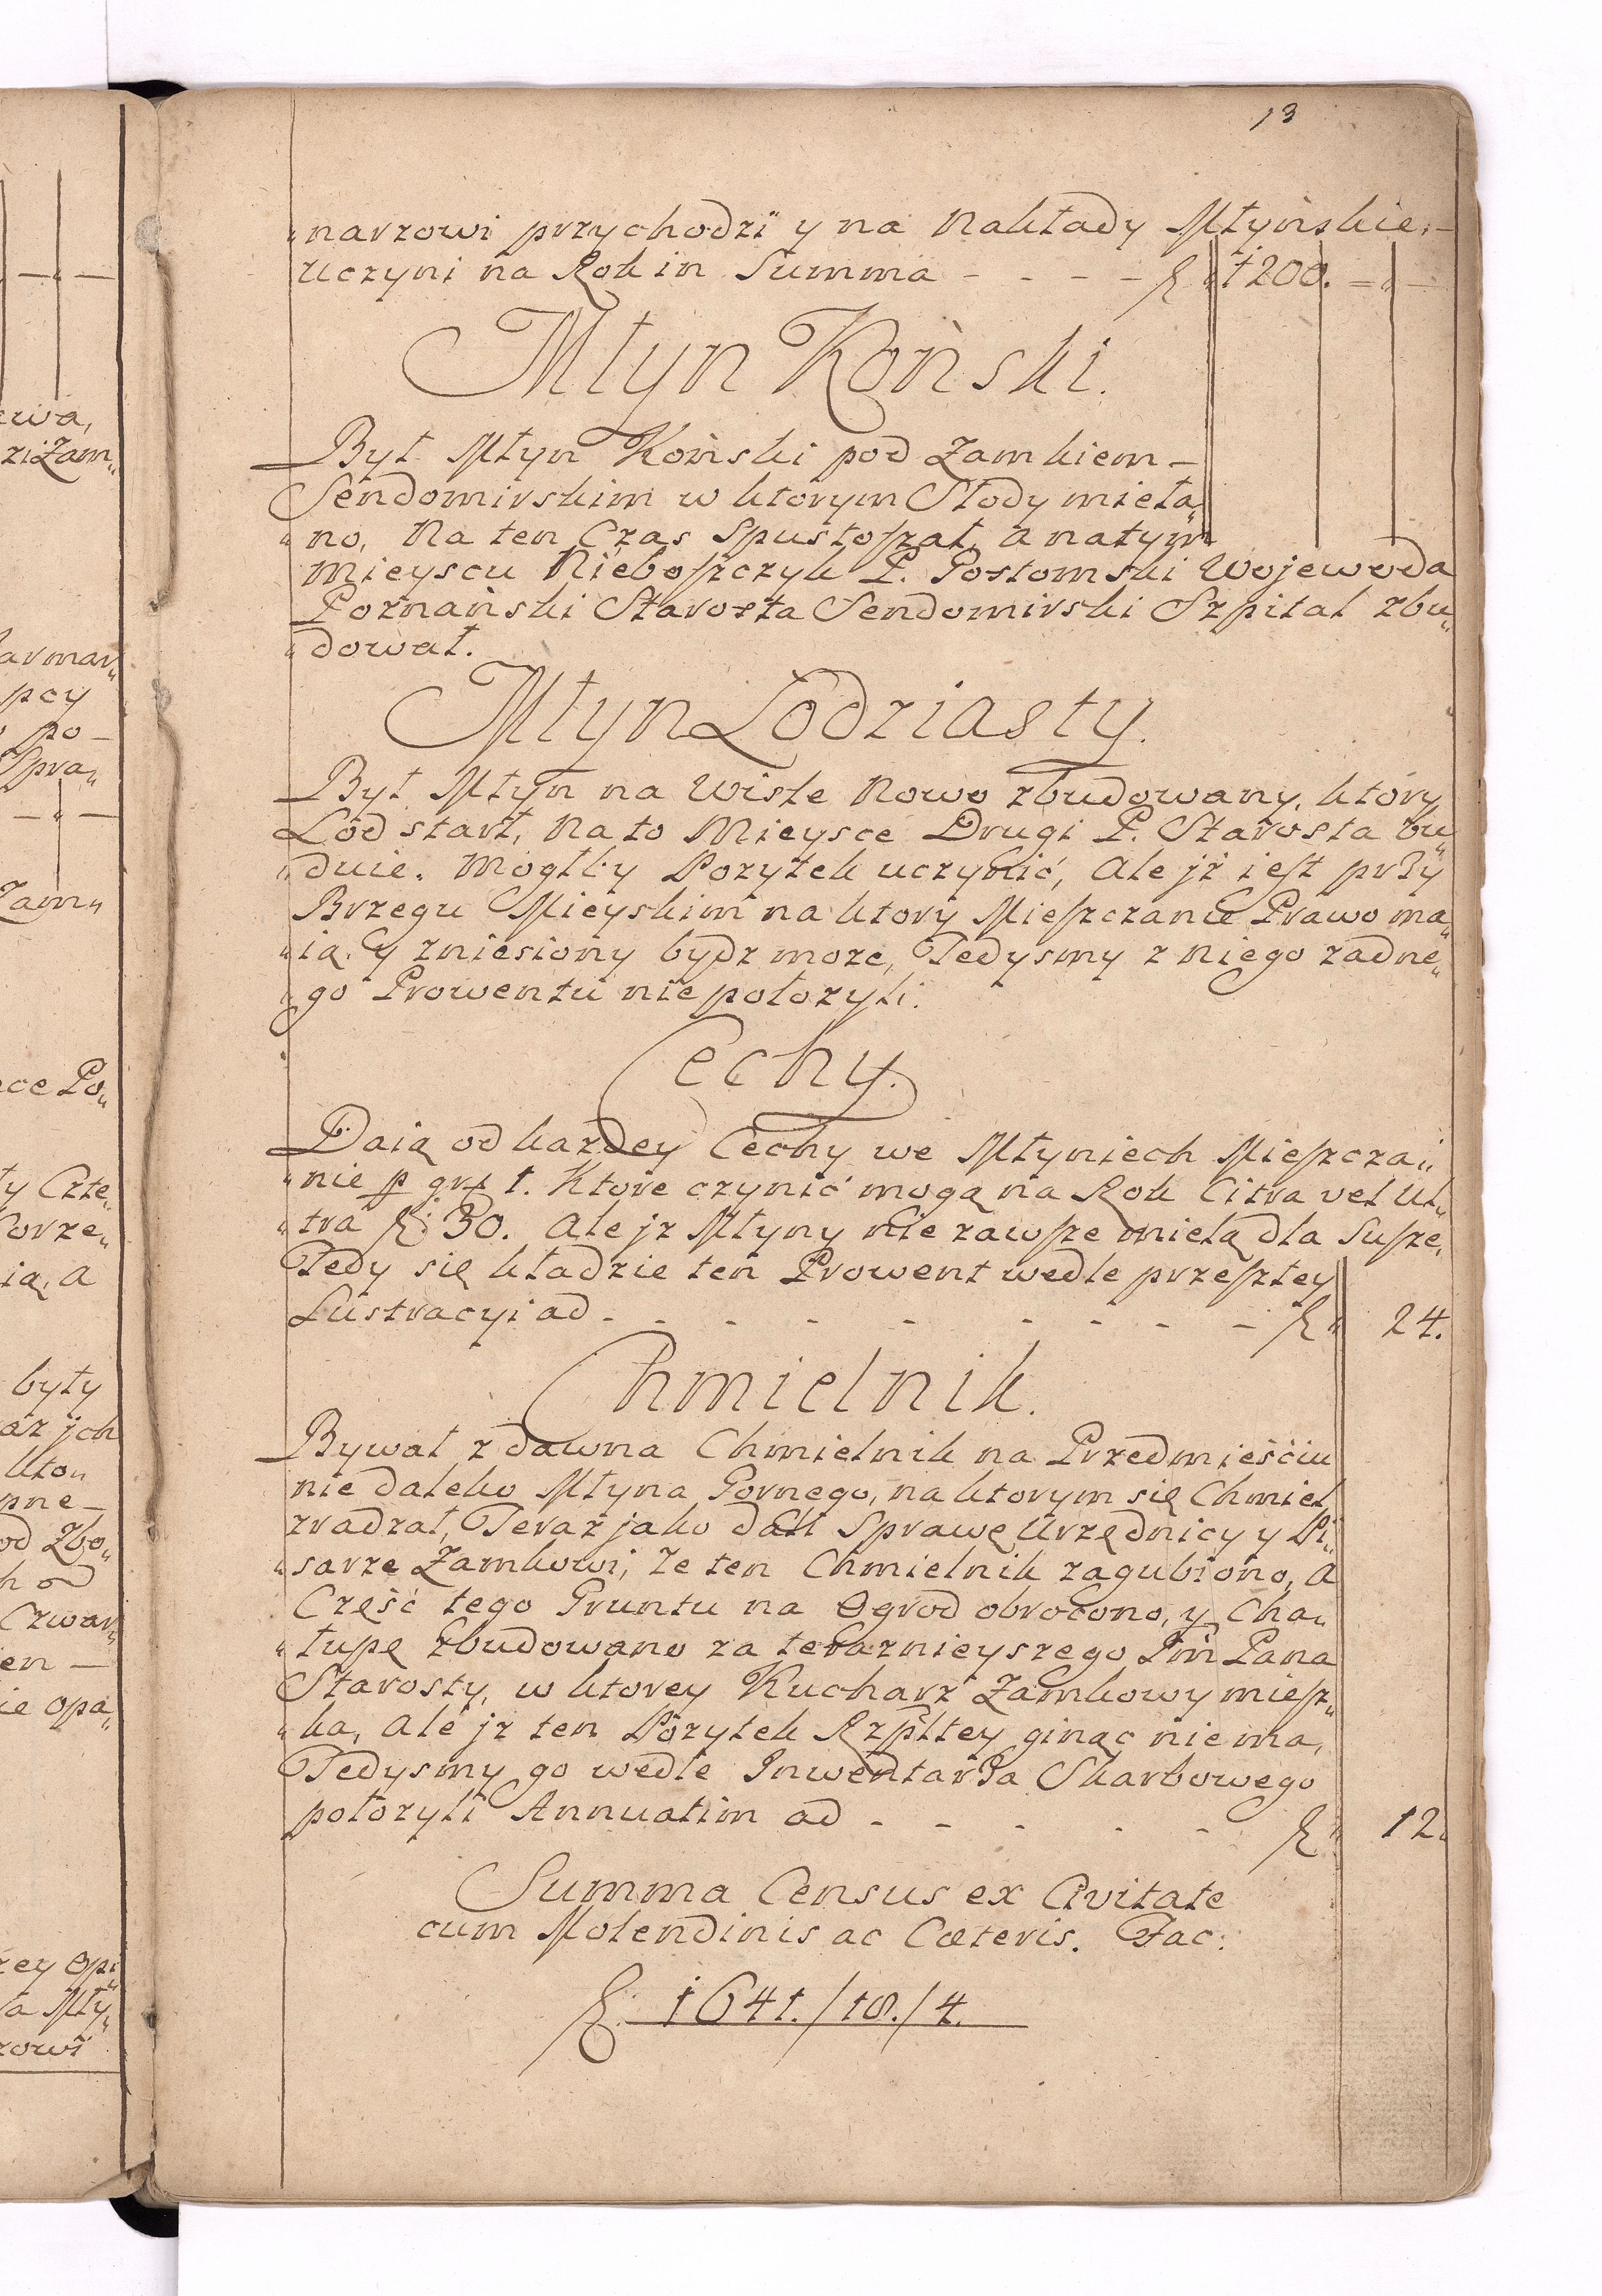 13
"narzowi przychodzi y na Nakłady Młyńskie,
uczyni na Rok in Summa - - - - 1200.
Młyn Koński.
Był Młyn Koński pod Zamkiem
Sendomirskim w ktorym Słody mieła„
„no, Na ten Czas Spustoszał, a na tym
Mieyscu Nieboszczyk P. Postomski Wojewoda
Poznański Starosta Sendomirski Szpital zbu„
„dował.
Młyn Lodziasty.
Był Młyn na Wisle Nowo zbudowany, ktory
Lód starł, Na to Mieysce Drugi P. Starosta bu„
„duie. Mogłby Pozytek uczynić, Ale jż iest przy
Brzegu Mieyskim na ktory Mieszczanie Prawo ma„
„ią. y zniesiony bydz moze, Tedysmy z niego zadne„
„go Prowentu nie połozyli.
Cechy.
Daią od kazdey Cechy we Młyniech Mieszcza„
„nie p gr 1. Ktore czynić mogą na Rok Citra vel Ul„
„tra 30. Ale jz Młyny nie zawsze mielą dla Susze,
Tedy się kładzie ten Prowent wedle przeszłey
Lustracyi ad - - - - - - - - - 24.
Chmielnik.
Bywał z dawna Chmielnik na Przedmieściu
nie daleko Młyna Gornego, na ktorym się Chmiel
zradzał, Teraz jako dali Sprawę Urzędnicy y Pi„
„sarze Zamkowi, Ze ten Chmielnik zagubiono, a
Część tego Gruntu na Ogrod obrocono, y Cha„
„łupę zbudowano za teraznieyszego Jm Pana
Starosty, w ktorey Kucharz Zamkowy miesz„
„ka, Ale jz ten Pozytek Rzpltey ginąc nie ma,
Tedysmy go wedle Inwentarza Skarbowego
połozyli Annuatim ad - - - - - 12.
Summa Census ex Civitate
cum Molendinis ac Cæteris. Fac:
1641./18./4.